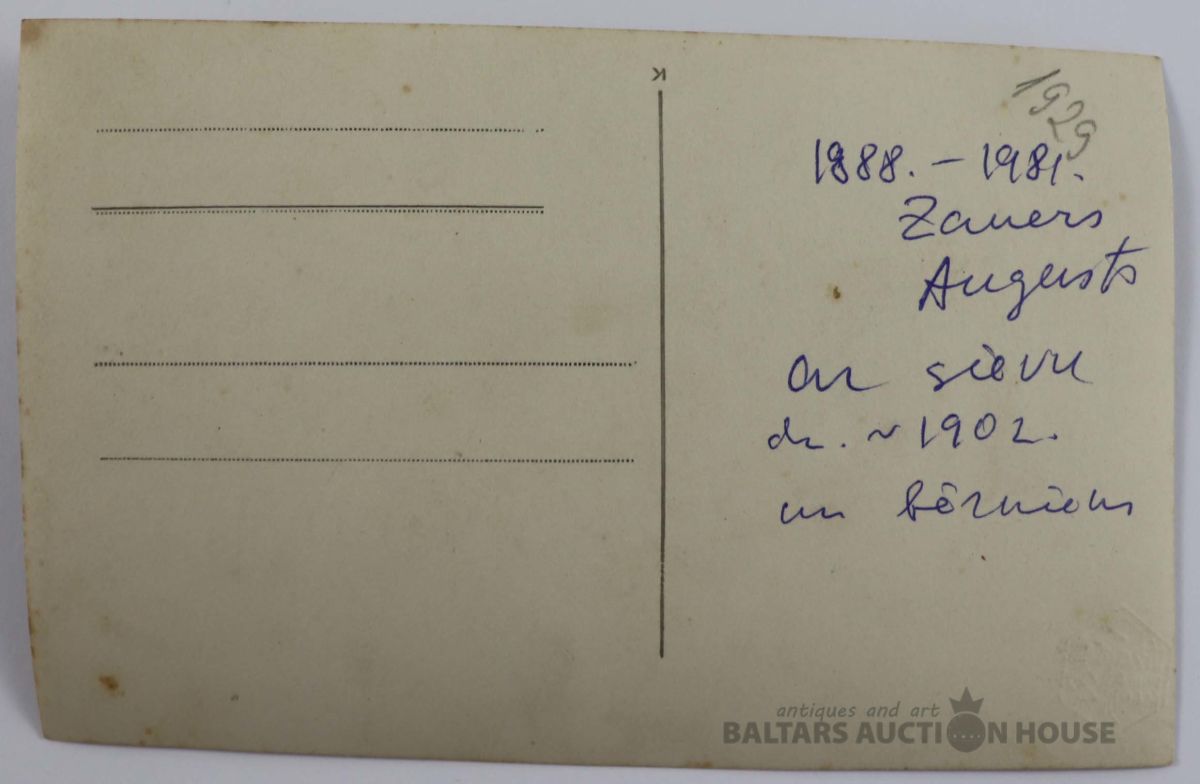 K
1929
1888. – 1981.
Zauers
Augusts
ar sievu
dz. ~ 1902.
un bērniem
antiques and art
BALTARS AUCTION HOUSE